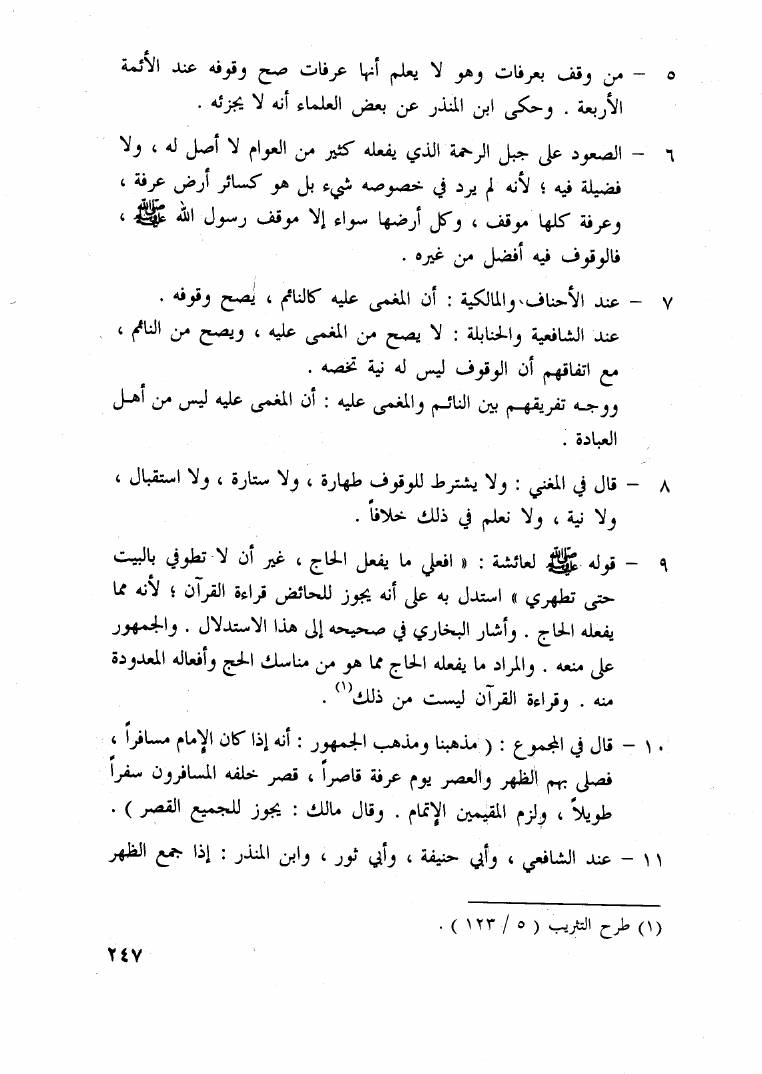 ٥ – من وقف بعرفات وهو لا يعلم أنها عرفات صح وقوفه عند الأئمة
الأربعة . وحكى ابن المنذر عن بعض العلماء أنه لا يجزئه .
٦ – الصعود على جبل الرحمة الذي يفعله كثير من العوام لا أصل له ، ولا
فضيلة فيه ؛ لأنه لم يرد في خصوصه شيء بل هو كسائر أرض عرفة ،
وعرفة كلها موقف ، وكل أرضها سواء إلا موقف رسول الله ﷺ ،
فالوقوف فيه أفضل من غيره .
٧ – عند الأحناف والمالكية : أن المغمى عليه كالنائم ، يصح وقوفه .
عند الشافعية والحنابلة : لا يصح من المغمى عليه ، ويصح من النائم ،
مع اتفاقهم أن الوقوف ليس له نية تخصه .
ووجه تفريقهم بين النائم والمغمى عليه : أن المغمى عليه ليس من أهل
العبادة .
٨ – قال في المغني : ولا يشترط للوقوف طهارة ، ولا ستارة ، ولا استقبال ،
ولا نية ، ولا نعلم في ذلك خلافاً .
٩ – قوله ﷺ لعائشة : « افعلي ما يفعل الحاج ، غير أن لا تطوفي بالبيت
حتى تطهري » استدل به على أنه يجوز للحائض قراءة القرآن ؛ لأنه مما
يفعله الحاج . وأشار البخاري في صحيحه إلى هذا الاستدلال . والجمهور
على منعه . والمراد ما يفعله الحاج مما هو من مناسك الحج وأفعاله المعدودة
منه . وقراءة القرآن ليست من ذلك(١) .
١٠ – قال في المجموع : ( مذهبنا ومذهب الجمهور : أنه إذا كان الإمام مسافراً ،
فصلى بهم الظهر والعصر يوم عرفة قاصراً ، قصر خلفه المسافرون سفراً
طويلاً ، ولزم المقيمين الإتمام . وقال مالك : يجوز للجميع القصر ) .
١١ – عند الشافعي ، وأبي حنيفة ، وأبي ثور ، وابن المنذر : إذا جمع الظهر
(١) طرح التثريب ( ٥ / ١٢٣ ) .
٢٤٧